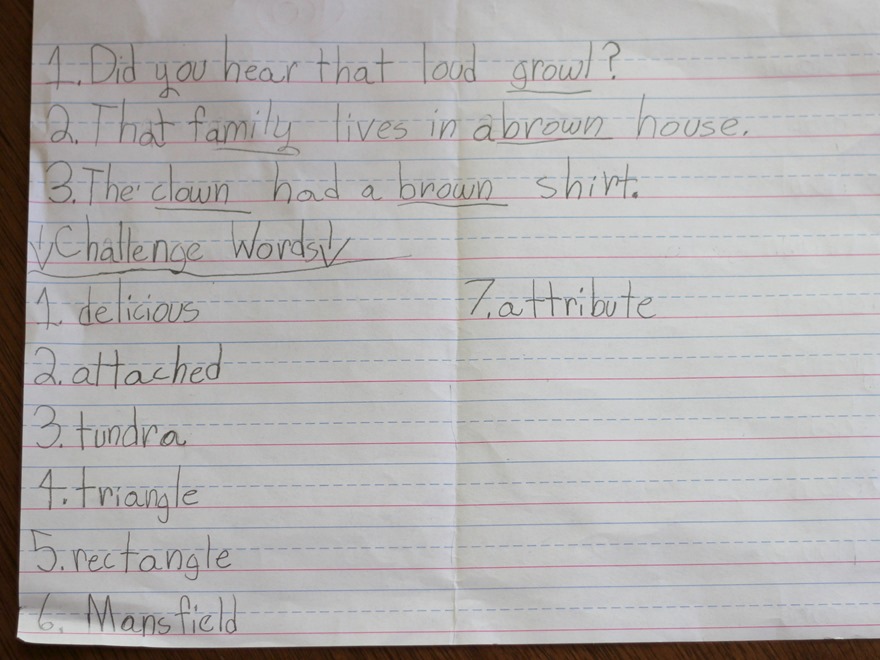 1. Did you hear that loud growl?
2. That family lives in a brown house.
3. The clown had a brown shirt.
Challenge Words
1. delicious
2. attached
3. tundra
4. triangle
5. rectangle
6. Mansfield
7. attribute